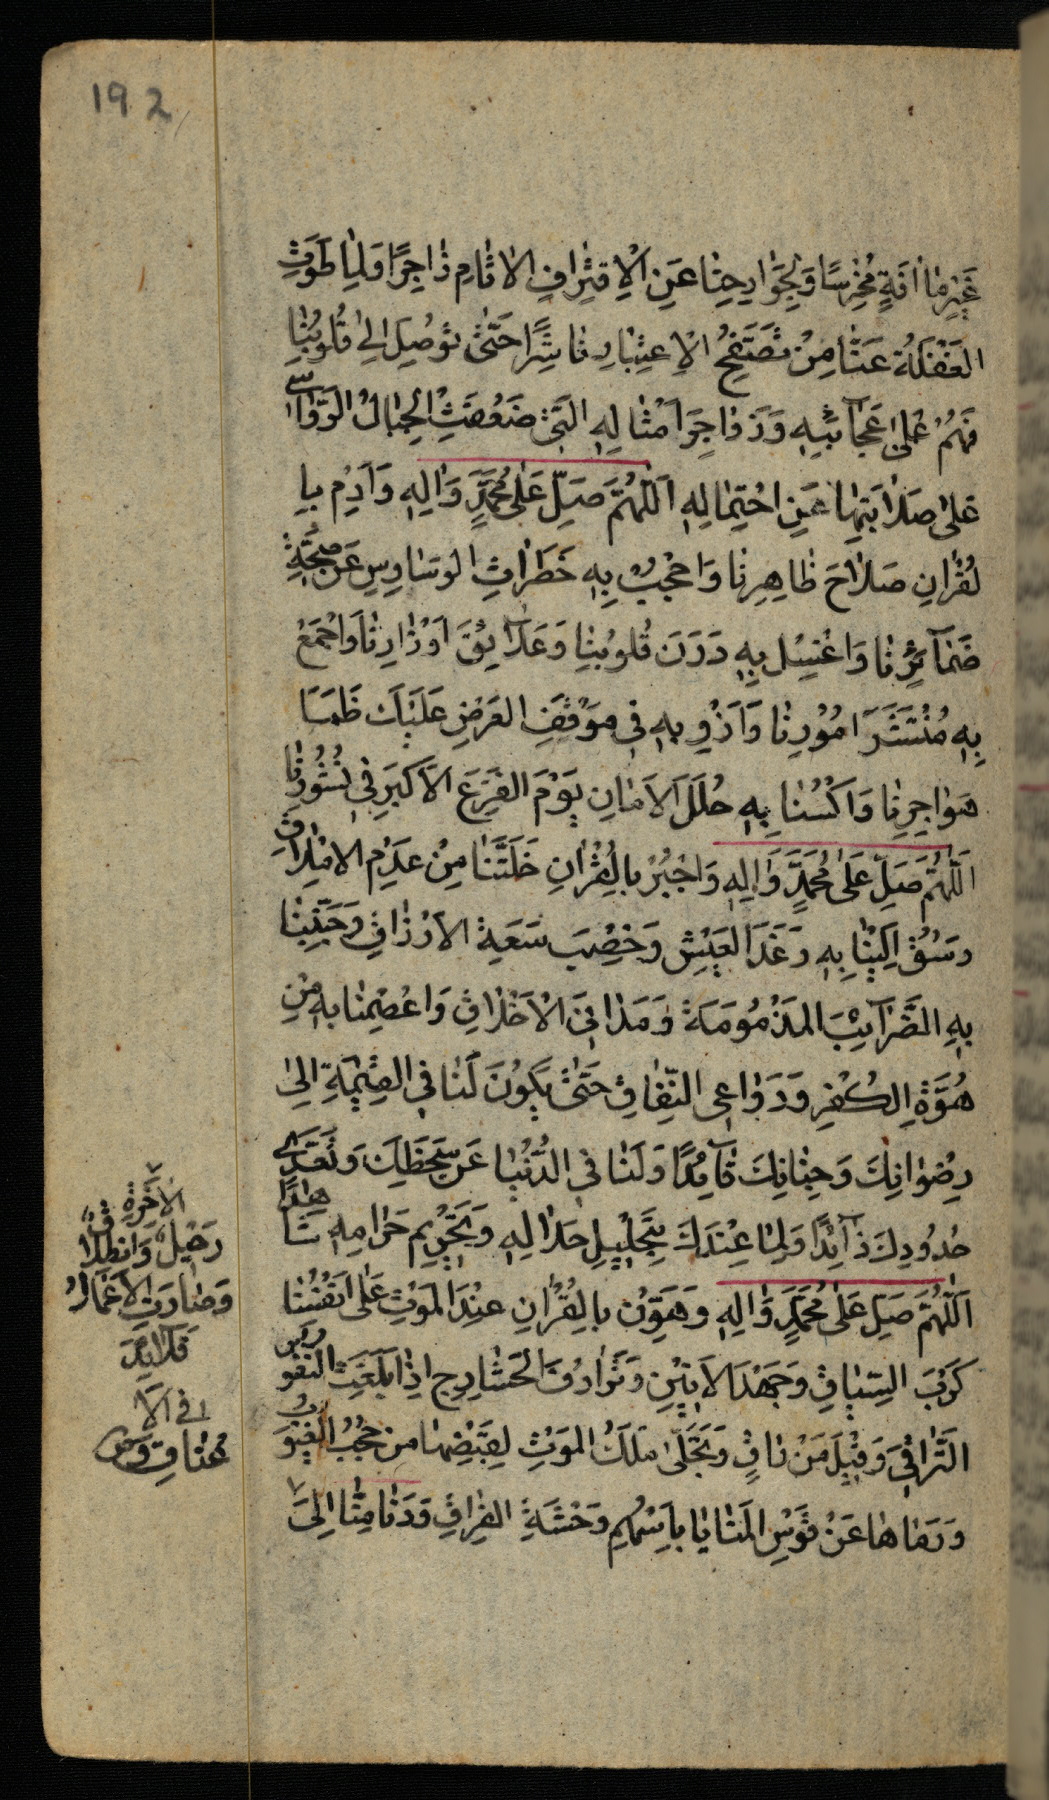 192
غَيْرِ مٰا اٰفَةٍ مُخْرِسًا وَلِجَوٰارِحِنٰا عَنِ الْاِقْتِرٰافِ الْاٰثٰامِ زٰاجِرًا وَلِمٰا طَوَتِ
الغَفْلَةُ عَنّٰا مِنْ تَصَفُّحِ الْاِعْتِبٰارِ نٰاشِرًا حَتّٰى تُوصِلَ اِلٰى قُلُوبِنٰا
فَهْمَ عَلىٰ عَجٰآئِبِهٖ وَزَوٰاجِرَ اَمْثٰالِهِ الَّتِىْ ضَعُفَتِ الْجِبٰالُ الرَّوٰاسى
عَلىٰ صَلٰابَتِهٰا عَنِ احْتِمٰالِهٖ اَللّٰهُمَّ صَلِّ عَلىٰ مُحَمَّدٍ وَاٰلِهٖ وَاَدِمْ بِا
لقُرْاٰنِ صَلٰاحَ ظٰاهِرِنٰا وَاحْجُبْ بِهٖ خَطَرٰاتِ الوَسٰاوِسِ عَنْ صِحَّةِ
ضَمٰآئِرِنٰا وَاغْسِلْ بِهٖ دَرَنَ قُلُوبِنٰا وَعَلٰآئِقَ اَوْزٰارِنٰا وَاجْمَعْ
بِهٖ مُنْتَشَرَ اُمُوُرِنٰا وَاَرْوِ بِهٖ فِى مَوْقِفِ العَرْضِ عَلَيْكَ ظَمَأَ
هَوٰاجِرِنٰا وَاكْسُنٰا بِهٖ حُلَلَ الْاَمٰانِ يَوْمَ الفَزَعِ الْاَكْبَرِ فِى نُشُورِنٰا
اَللّٰهُمَّ صَلِّ عَلىٰ مُحَمَّدٍ وَاٰلِهٖ وَاجْبُرْ بِالْقُرْاٰنِ خَلَّتَنٰا مِنْ عَدَمِ الْاِمْلٰاقِ
وَسُقْ اِلَيْنٰا بِهٖ رَغَدَ العَيْشِ وَخِصْبَ سَعَةِ الْاَرْزٰاقِ وَجَنِّبْنٰا
بِهِ الضَّرٰآئِبَ المَذْمُومَةَ وَمَدٰانِىَ الْاَخْلٰاقِ وَاعْصِمْنٰا بِهٖ مِنْ
هُوَّةِ الكُفْرِ وَدَوٰاعِى النِّفٰاقِ حَتّٰى يَكُوُنَ لَنٰا فِى القِيٰمَةِ اِلىٰ
رِضْوٰانِكَ وَجِنٰانِكَ قٰآئِدًا وَلَنٰا فِى الدُّنْيٰا عَنْ سَخَطِكَ وَتَعَدِّى
حُدُودِكَ ذٰآئِدًا وَلِمٰا عِنْدَكَ بِتَحْلِيْلِ حَلٰالِهٖ وَتَحْرِيْمِ حَرٰامِهٖ شٰاهِدًا
اَللّٰهُمَّ صَلِّ عَلىٰ مُحَمَّدٍ وَاٰلِهٖ وَهَوِّنْ بِالْقُرْاٰنِ عِنْدَ المَوْتِ عَلىٰ اَنْفُسِنٰا
كَرْبَ السِّيٰاقِ وَجَهْدَ الْاَنِيْنِ وَتَرٰادُفَ الحَشٰارِجِ اِذٰا بَلَغَتِ النُّفُوسُ
التَّرٰاقِىَ وَقِيْلَ مَنْ رٰاقٍ وَتَجَلّٰى مَلَكُ المَوْتِ لِقَبْضِهٰا مِنْ حُجُبِ الغُيُوبِ
وَرَمٰاهٰا عَنْ قَوْسِ المَنٰايٰا بِاَسْهُمِ وَحْشَةِ الفِرٰاقِ وَدَنٰا مِنّٰا اِلَى
الْاٰخِرَةِ
رَحِيْلٌ وَانْطِلٰاقٌ
وَصٰارَتِ الْاَعْمٰالُ
قَلٰائِدَ
فى الْاَ
عْنٰاقِ وص